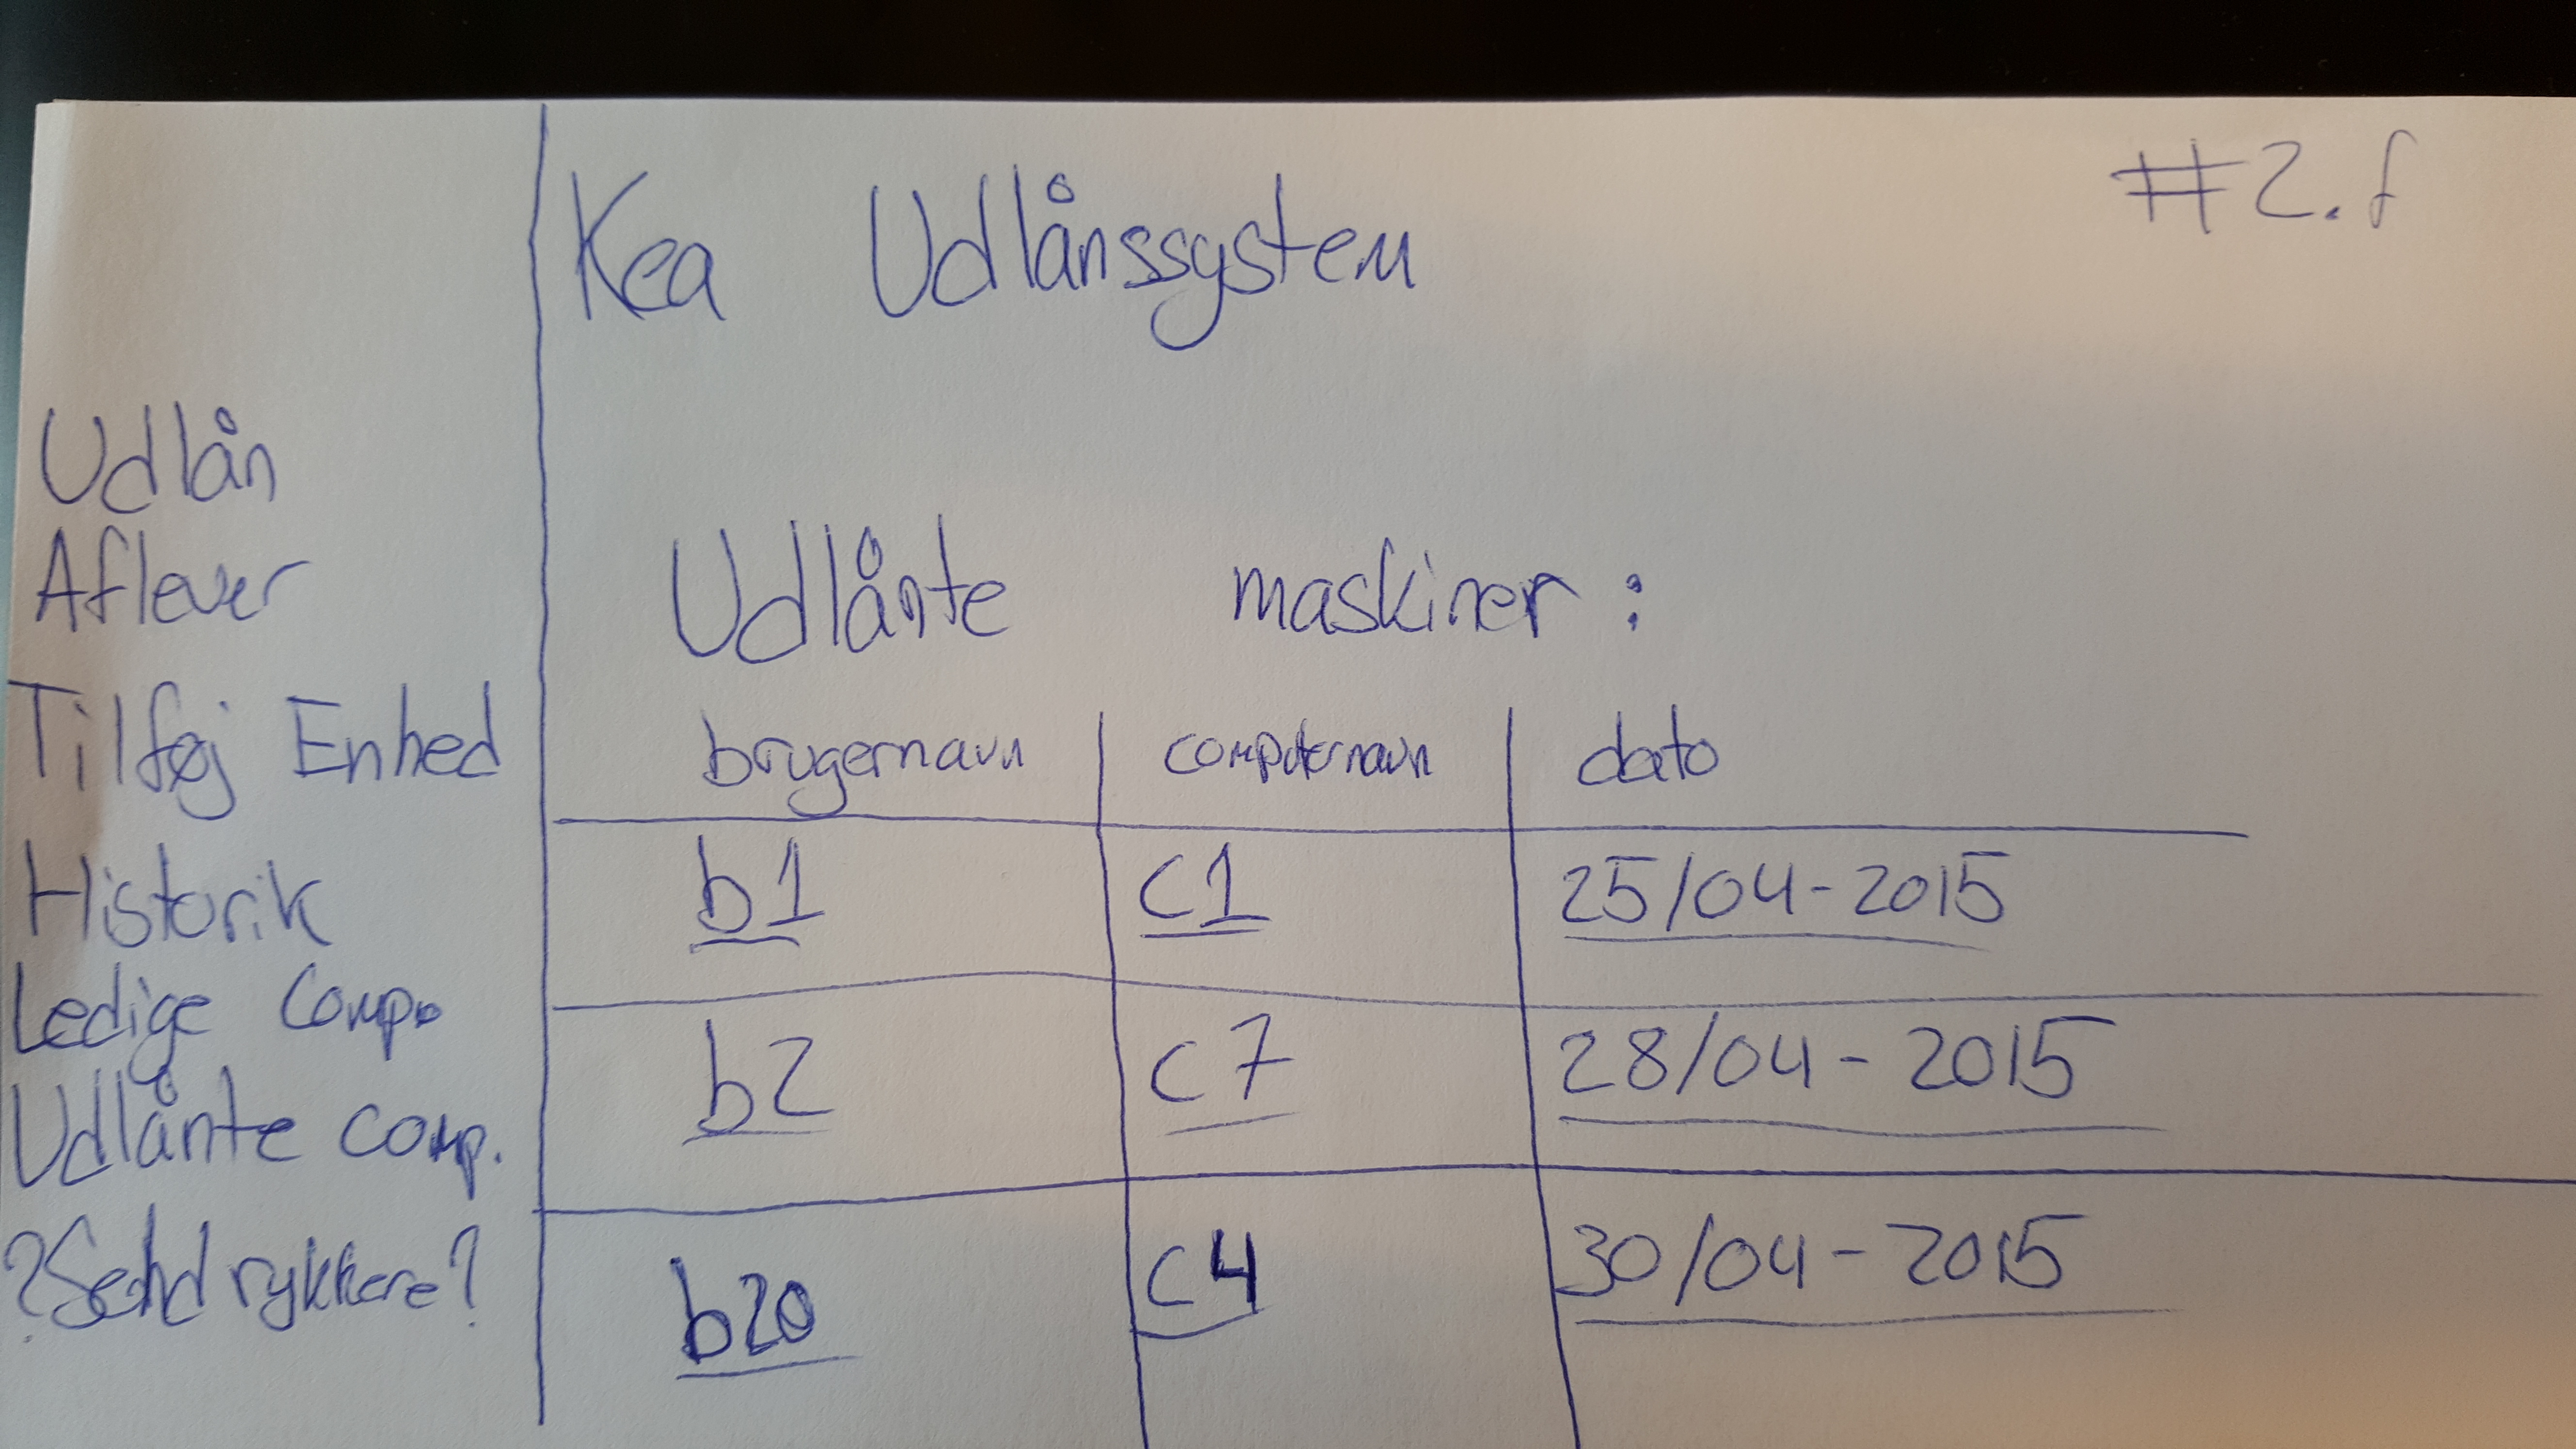 Kea Udlånssystem
#2.f
Udlån
Aflever
Tilføj Enhed
Historik
Ledige Comp.
Udlånte comp.
?Send rykkere?
Udlånte maskiner :
brugernavn computernavn dato
b1 c1 25/04-2015
b2 c7 28/04-2015
b20 c4 30/04-2015